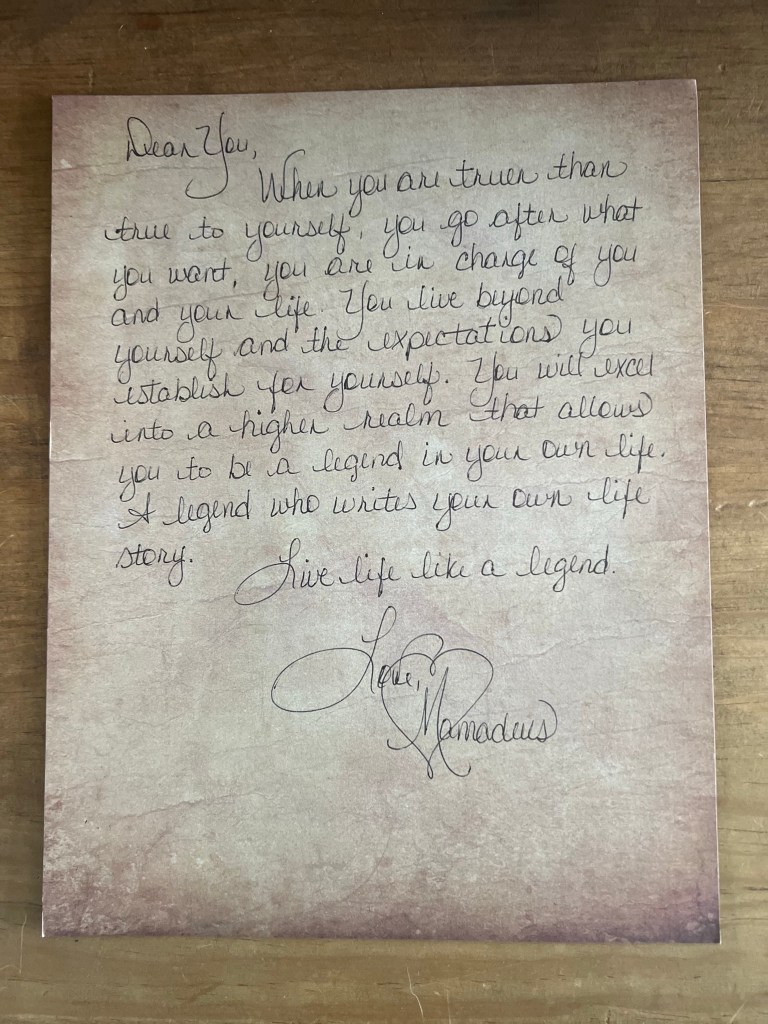 Dear You,
When you are truer than
true to yourself, you go after what
you want, you are in charge of you
and your life. You live beyond
yourself and the expectations you
establish for yourself. You will excel
into a higher realm that allows
you to be a legend in your own life.
A legend who writes your own life
story.
Live life like a legend.
Love,
Mamadeus